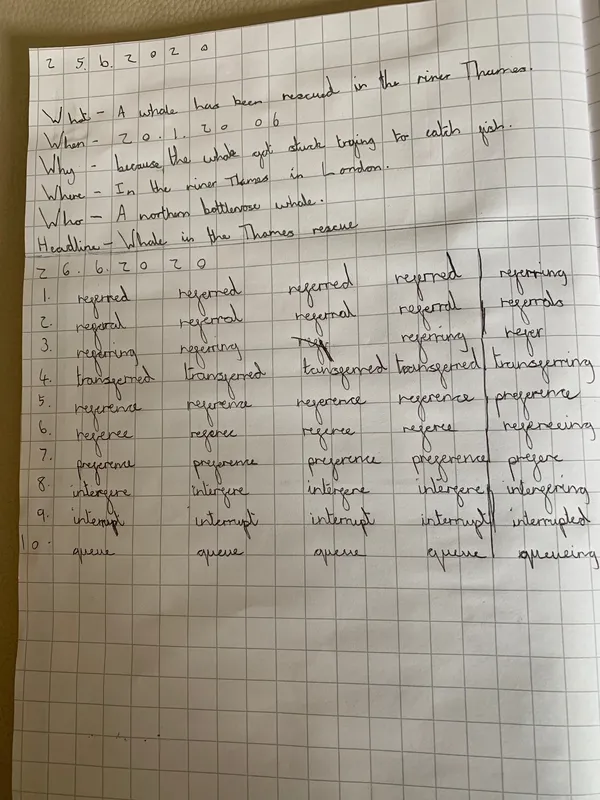 2 5.6.2020
What - A whale has been rescued in the river Thames.
When - 20.1.2006
Why - because the whale got stuck trying to catch fish.
Where - In the river Thames in London.
Who - A northern bottlenose whale.
Headline - Whale in the Thames rescue
2 6.6.2020
1. referred referred referred referred referring
2. referral referral referral referral referrals
3. referring referring referring refer
4. transferred transferred transferred transferred transferring
5. reference reference reference reference preference
6. referee referee referee referee refereeing
7. preference preference preference preference prefere
8. interfere interfere interfere interfere interfering
9. interrupt interrupt interrupt interrupt interrupted
10. queue queue queue queue queueing